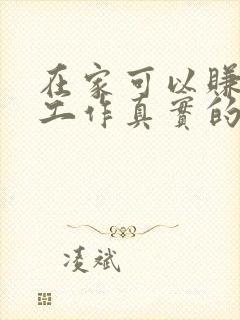 在家可以賺
工作真實的
凌斌